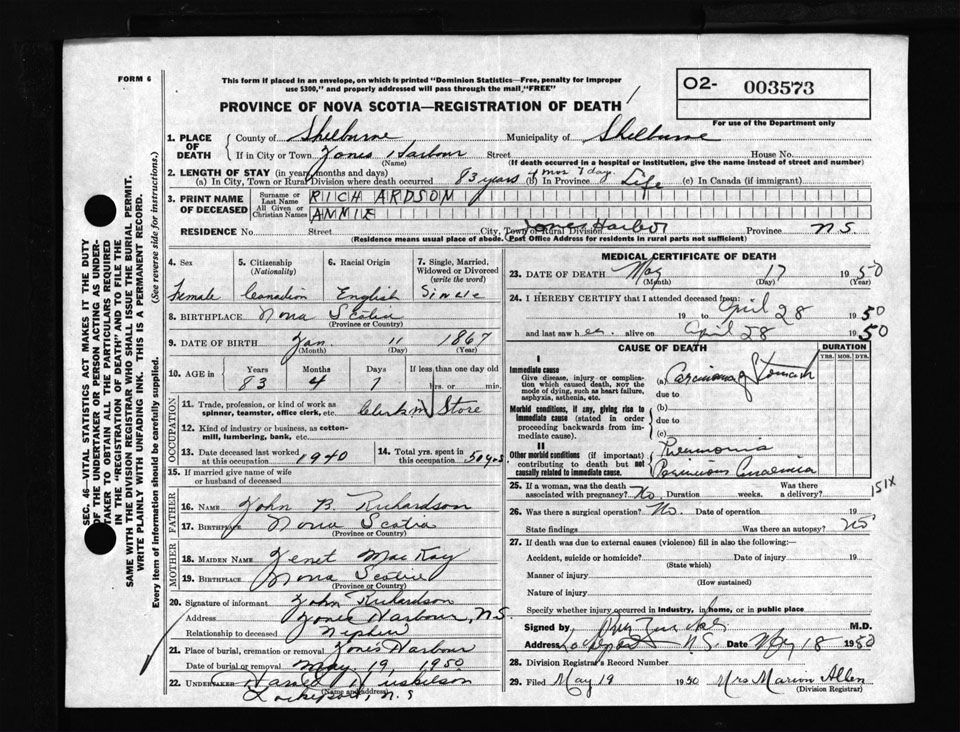 FORM 6
This form if placed in an envelope, on which is printed "Dominion Statistics—Free, penalty for improper
use $300," and properly addressed will pass through the mail "FREE"
O2- 003573
For use of the Department only
PROVINCE OF NOVA SCOTIA—REGISTRATION OF DEATH
1. PLACE OF DEATH
County of Shelburne Municipality of Shelburne
If in City or Town Jones Harbour Street House No.
(Name) (If death occurred in a hospital or institution, give the name instead of street and number)
2. LENGTH OF STAY (in years, months and days)
(a) In City, Town or Rural Division where death occurred 83 years 4 mos 7 day. (b) In Province Life (c) In Canada (if immigrant)
3. PRINT NAME OF DECEASED
Surname or Last Name RICHARDSON
All Given or Christian Names AMMIE
RESIDENCE No. Street City, Town or Rural Division Jones Harbor Province N.S.
(Residence means usual place of abode. Post Office Address for residents in rural parts not sufficient)
4. Sex Female
5. Citizenship (Nationality) Canadian
6. Racial Origin English
7. Single, Married, Widowed or Divorced (write the word) Single
8. BIRTHPLACE Nova Scotia
(Province or Country)
9. DATE OF BIRTH Jan. 11 1867
(Month) (Day) (Year)
10. AGE in Years Months Days If less than one day old
83 4 7 hrs. or min.
OCCUPATION
11. Trade, profession, or kind of work as spinner, teamster, office clerk, etc. Clerk in Store
12. Kind of industry or business, as cotton-mill, lumbering, bank, etc.
13. Date deceased last worked at this occupation 1940
14. Total yrs. spent in this occupation 50 yrs
15. If married give name of wife or husband of deceased
FATHER
16. NAME John B. Richardson
17. BIRTHPLACE Nova Scotia
(Province or Country)
MOTHER
18. MAIDEN NAME Jenet MacKay
19. BIRTHPLACE Nova Scotia
(Province or Country)
20. Signature of informant John Richardson
Address Jones Harbour, N.S.
Relationship to deceased Nephew
21. Place of burial, cremation or removal Jones Harbour
Date of burial or removal May 19, 1950
22. UNDERTAKER Harold
(Name and address)
Lockeport, N.S
MEDICAL CERTIFICATE OF DEATH
23. DATE OF DEATH May 17 1950
(Month) (Day) (Year)
24. I HEREBY CERTIFY that I attended deceased from:
19 to April 28 1950
and last saw her alive on April 28 1950
CAUSE OF DEATH DURATION
YRS. MOS. DYS.
I
Immediate cause
Give disease, injury or complication which caused death, not the mode of dying, such as heart failure, asphyxia, asthenia, etc.
(a) Carcinoma of Stomach
due to
Morbid conditions, if any, giving rise to immediate cause (stated in order proceeding backwards from immediate cause).
(b)
due to
(c)
II
Other morbid conditions (if important) contributing to death but not causally related to immediate cause.
Pneumonia
Pernicious Anaemia
151X
25. If a woman, was the death associated with pregnancy? No. Duration weeks. Was there a delivery?
26. Was there a surgical operation? No. Date of operation 19
State findings Was there an autopsy? No
27. If death was due to external causes (violence) fill in also the following:—
Accident, suicide or homicide? Date of injury 19
(State which)
Manner of injury
(How sustained)
Nature of injury
Specify whether injury occurred in industry, in home, or in public place
Signed by M.D.
Address Lockeport N.S. Date May 18 1950
28. Division Registrar's Record Number
29. Filed May 19 1950 Mrs Marion Allen
(Division Registrar)
SEC. 46—VITAL STATISTICS ACT MAKES IT THE DUTY
OF THE UNDERTAKER OR PERSON ACTING AS UNDER-
TAKER TO OBTAIN ALL THE PARTICULARS REQUIRED
IN THE "REGISTRATION OF DEATH" AND TO FILE THE
SAME WITH THE DIVISION REGISTRAR WHO SHALL ISSUE THE BURIAL PERMIT.
WRITE PLAINLY WITH UNFADING INK. THIS IS A PERMANENT RECORD.
Every item of information should be carefully supplied. (See reverse side for instructions.)